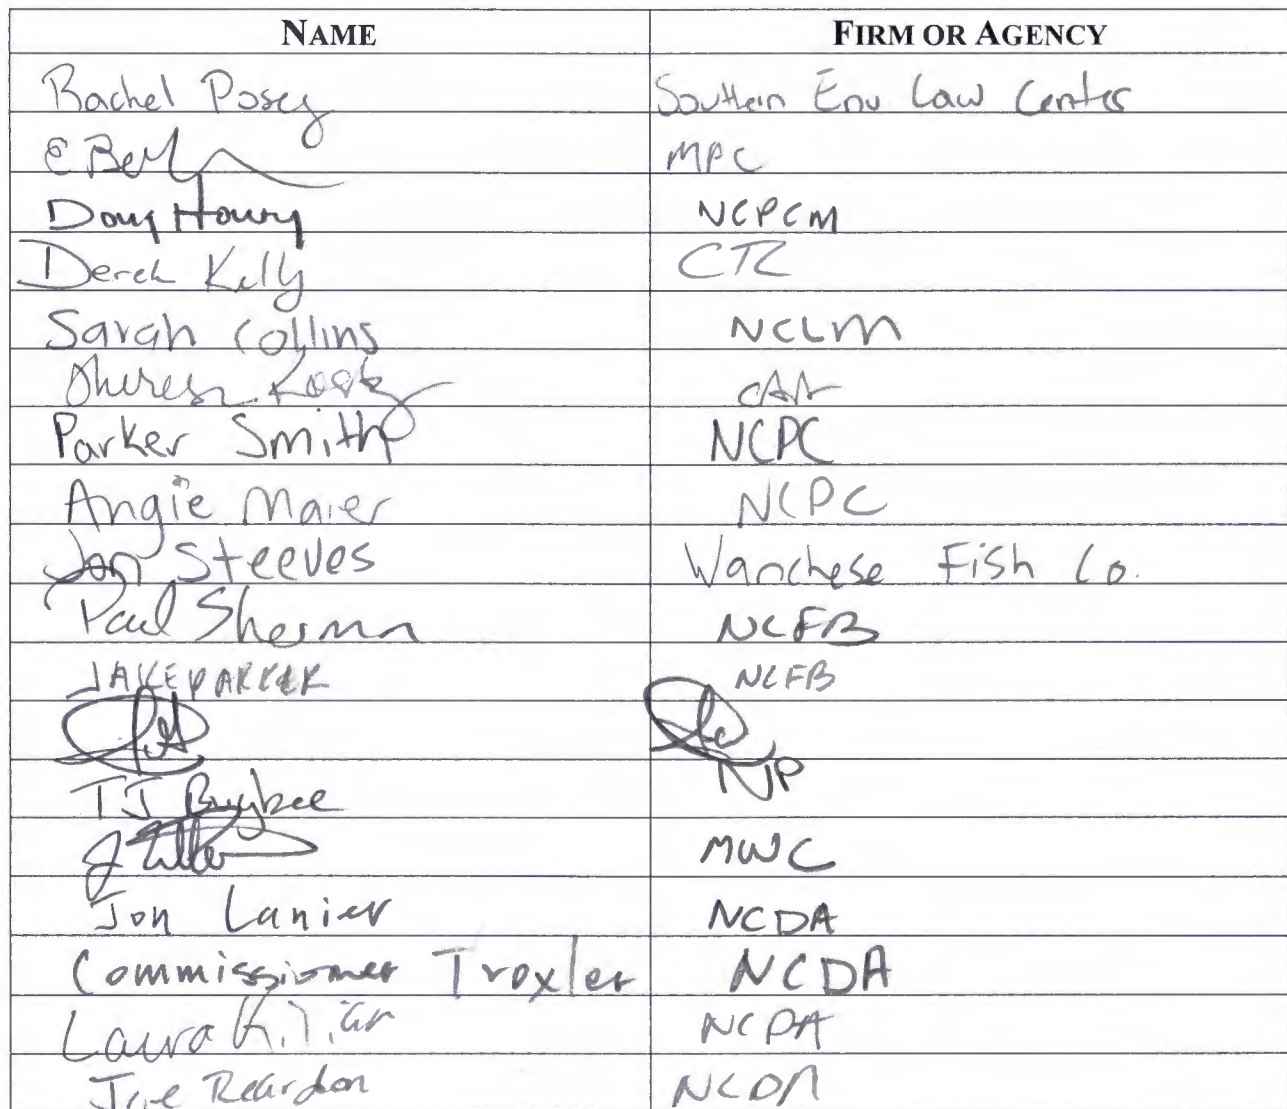 NAME FIRM OR AGENCY
Rachel Posey Southern Env Law Center
MPC
Doug Howey NCPCM
Derek Kelly CTR
Sarah Collins NCLM
Theresa
Parker Smith NCPC
Angie Maier NCPC
Jon Steeves Wanchese Fish Co.
Paul Sherman NCFB
JAKE PARKER NCFB
TJ Bugbee NP
MWC
Jon Lanier NCDA
Commissioner Troxler NCDA
Laura NCDA
Joe Reardon NCDA